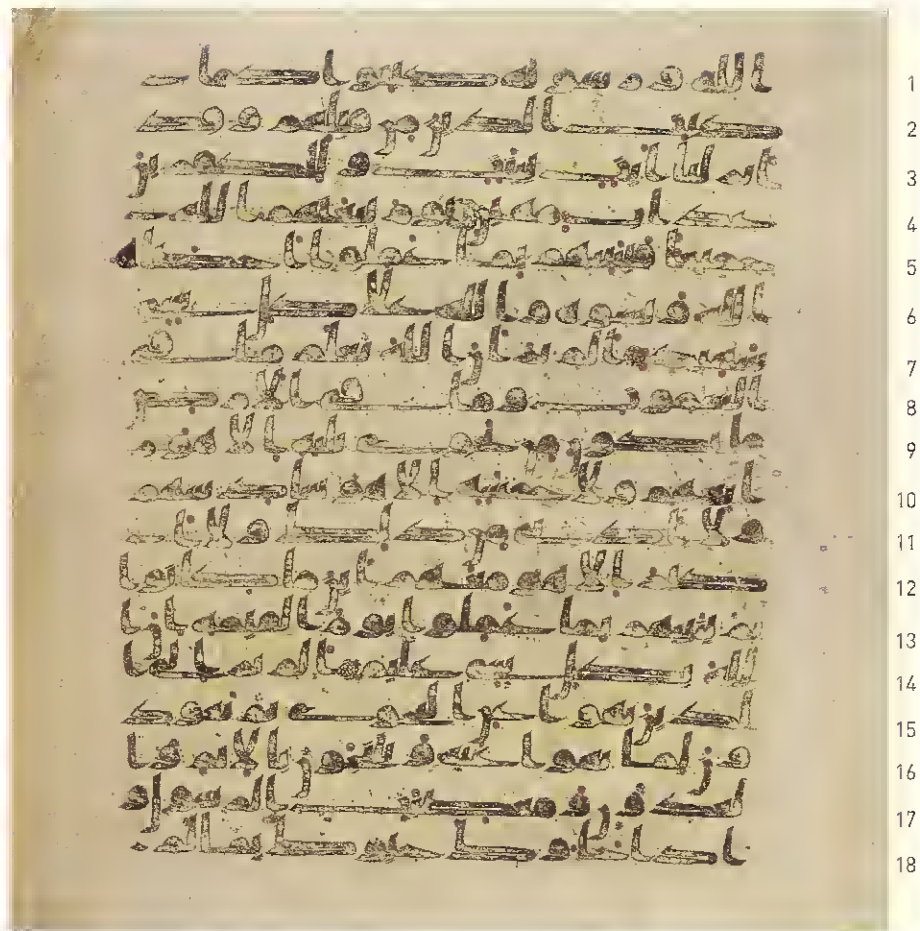 الله ورسوله كبتوا كما
كبت الذين من قبلهم وقد
انزلنا ايت بينت وللكفرين
عذاب مهين يوم يبعثهم الله
جميعا فينبئهم بما عملوا احصه
الله ونسوه والله على كل شى
شهيد الم تر ان الله يعلم ما فى
السموت وما فى الارض
ما يكون من نجوى ثلثه الا هو ر
ابعهم ولا خمسه الا هو سادسهم
ولا ادنى من ذلك ولا ا
كثر الا هو معهم اين ما كانوا ثم
ينبئهم بما عملوا يوم القيمه ان ا
لله بكل شى عليم الم تر الى ا
لذين نهوا عن النجوى ثم يعود
ون لما نهوا عنه ويتنجون بالاثم وا
لعدون ومعصيت الرسول و
اذا جاوك حيوك بما لم
1
2
3
4
5
6
7
8
9
10
11
12
13
14
15
16
17
18